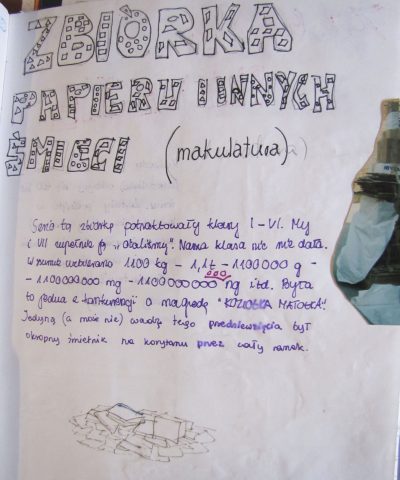 ZBIÓRKA
PAPIERU I INNYCH
ŚMIECI (makulatura)
Serio tą zbiórkę potraktowały klasy I-VI. My
i VII zupełnie ją „olaliśmy". Nasza klasa nic nie dała.
W sumie uzbierano 1100 kg - 1,1t - 1100000 g -
- 1100000000 mg - 1100000000 000 ng itd. Była
to jedna z konkurencji o nagrodę "KOZIOŁKA MATOŁKA".
Jedyną (a może nie) wadą tego przedsięwzięcia był
okropny śmietnik na korytarzu przez cały ranek.